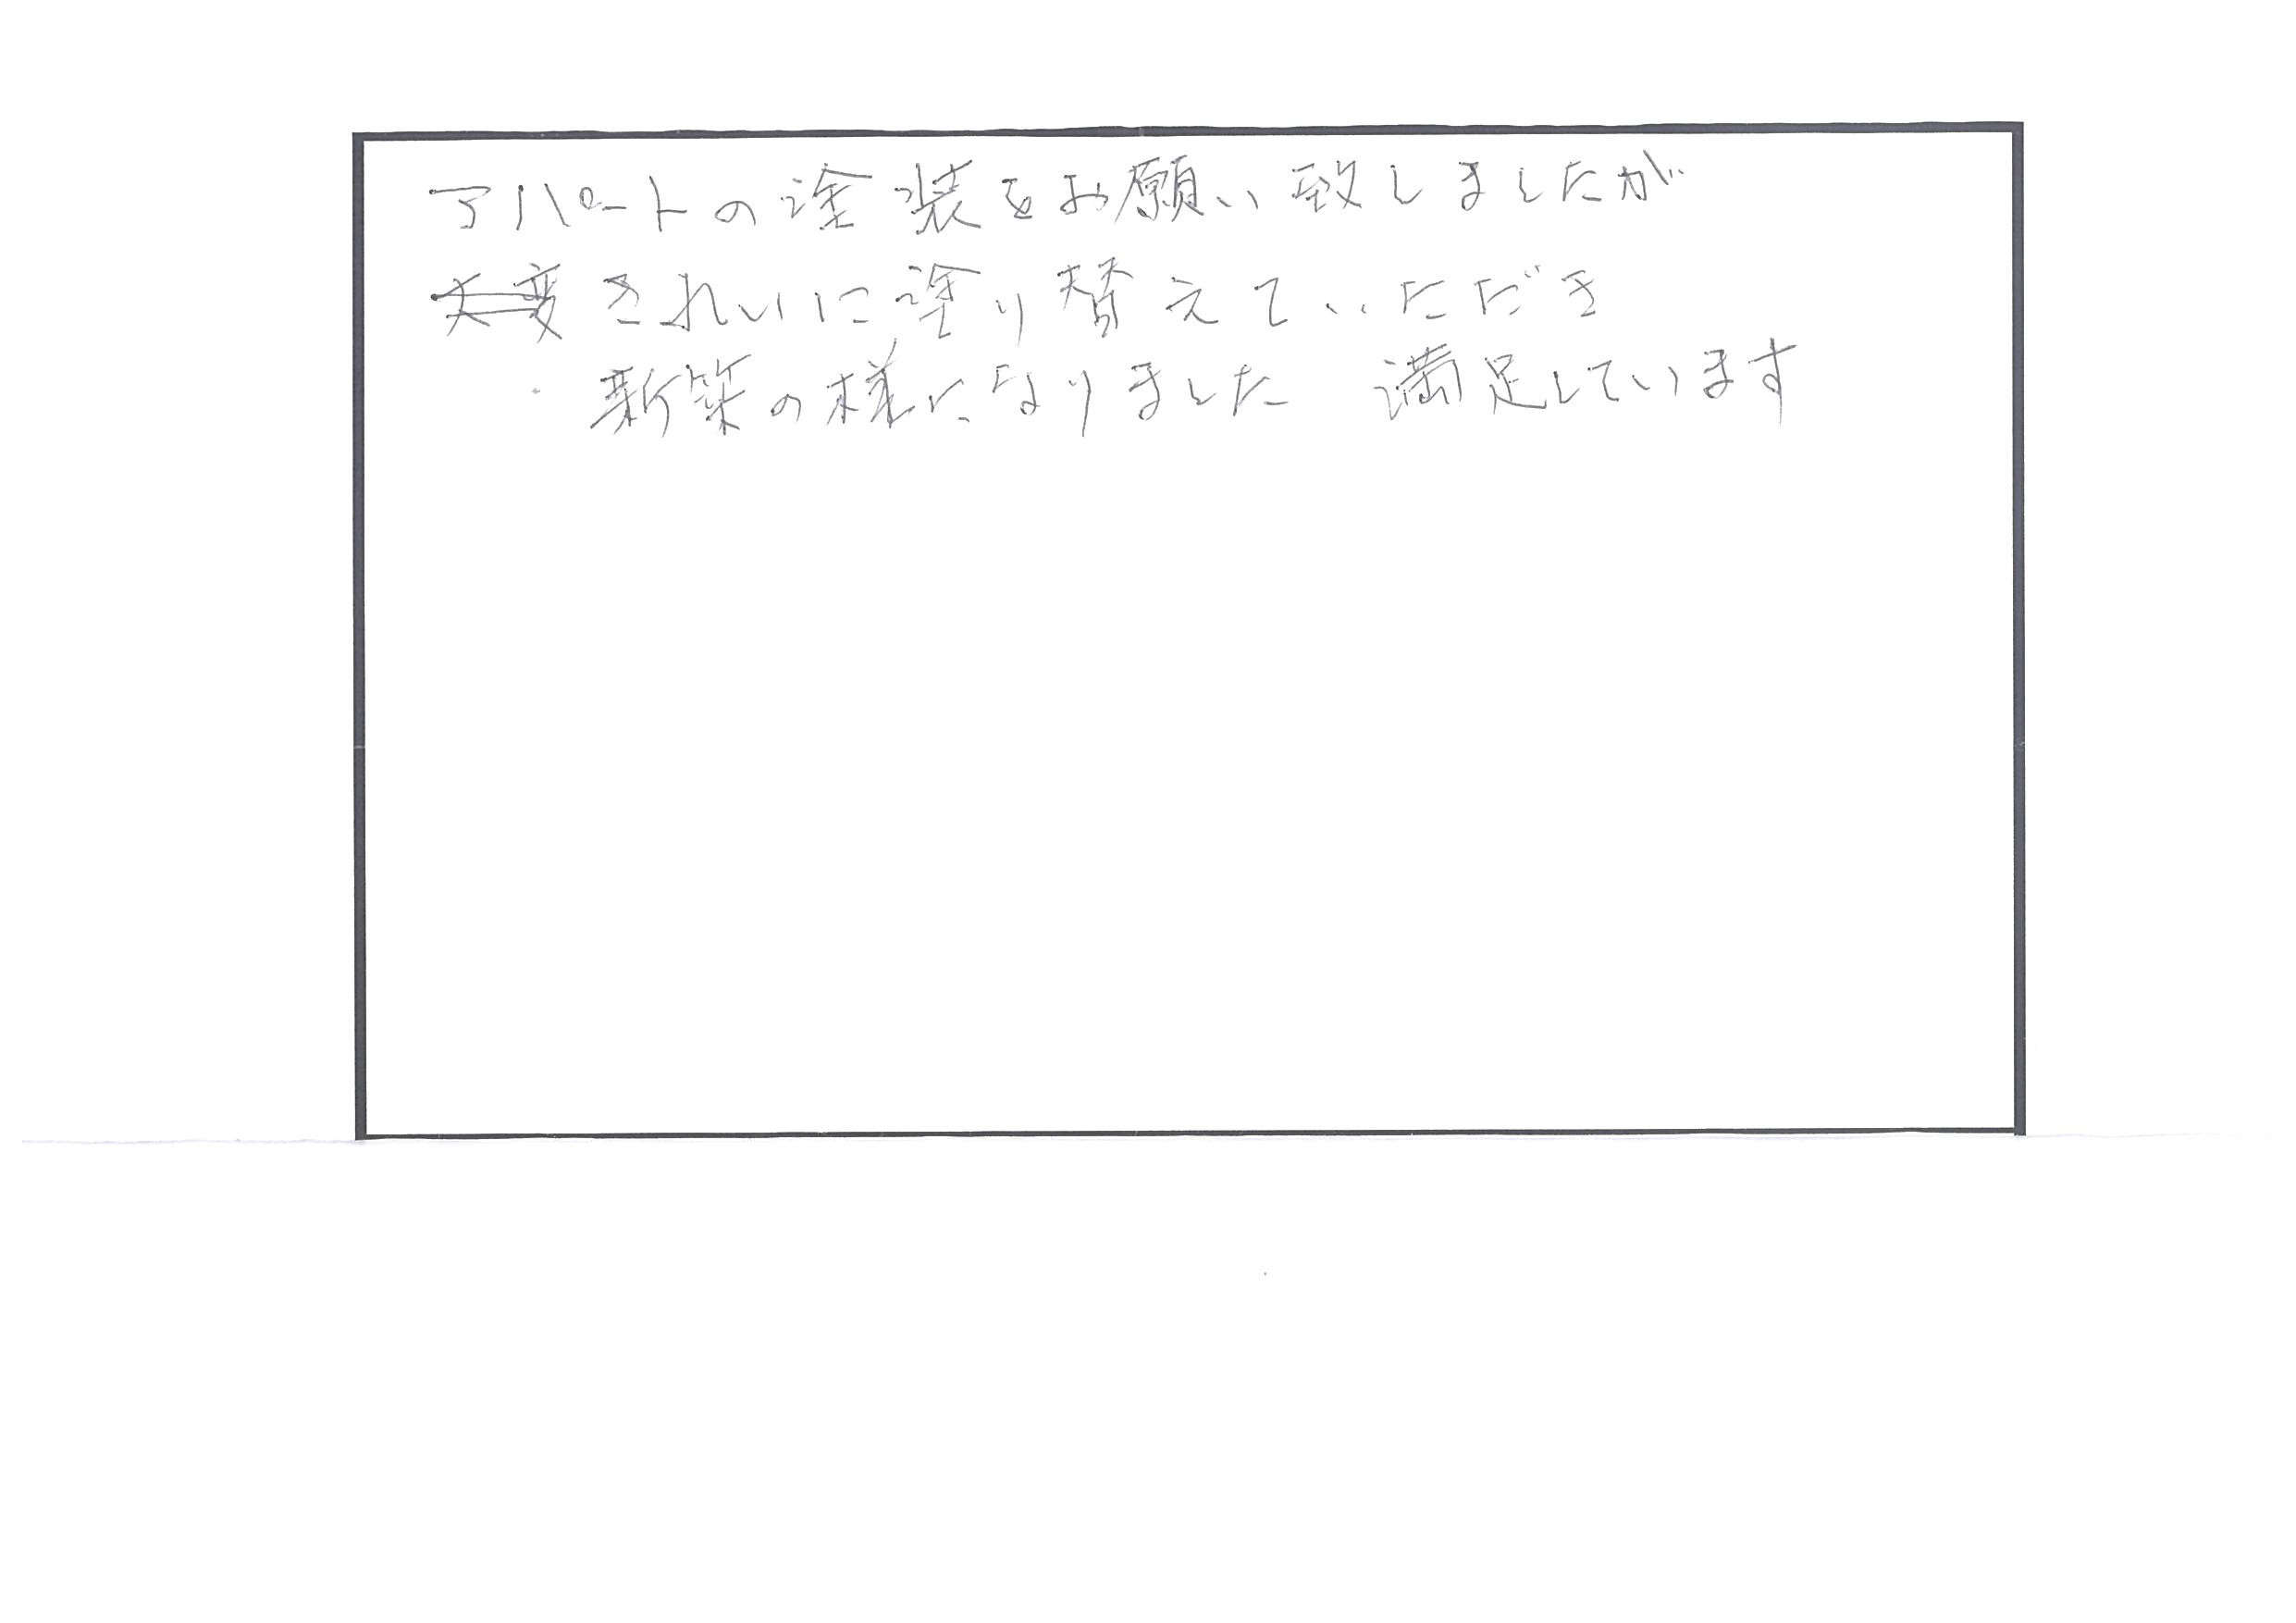 アパートの塗装をお願い致しましたが
大変きれいに塗り替えていただき
新築の様になりました 満足しています